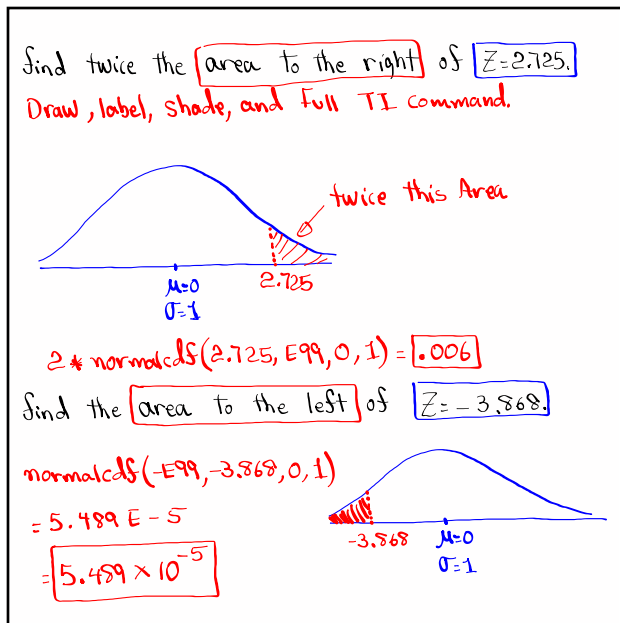 find twice the area to the right of Z=2.725.
Draw, label, shade, and Full TI command.
twice this Area
2.725
μ=0
σ=1
2 * normalcdf(2.725, E99, 0, 1) = .006
find the area to the left of Z=-3.868.
normalcdf(-E99, -3.868, 0, 1)
= 5.489 E-5
= 5.489 × 10⁻⁵
-3.868
μ=0
σ=1